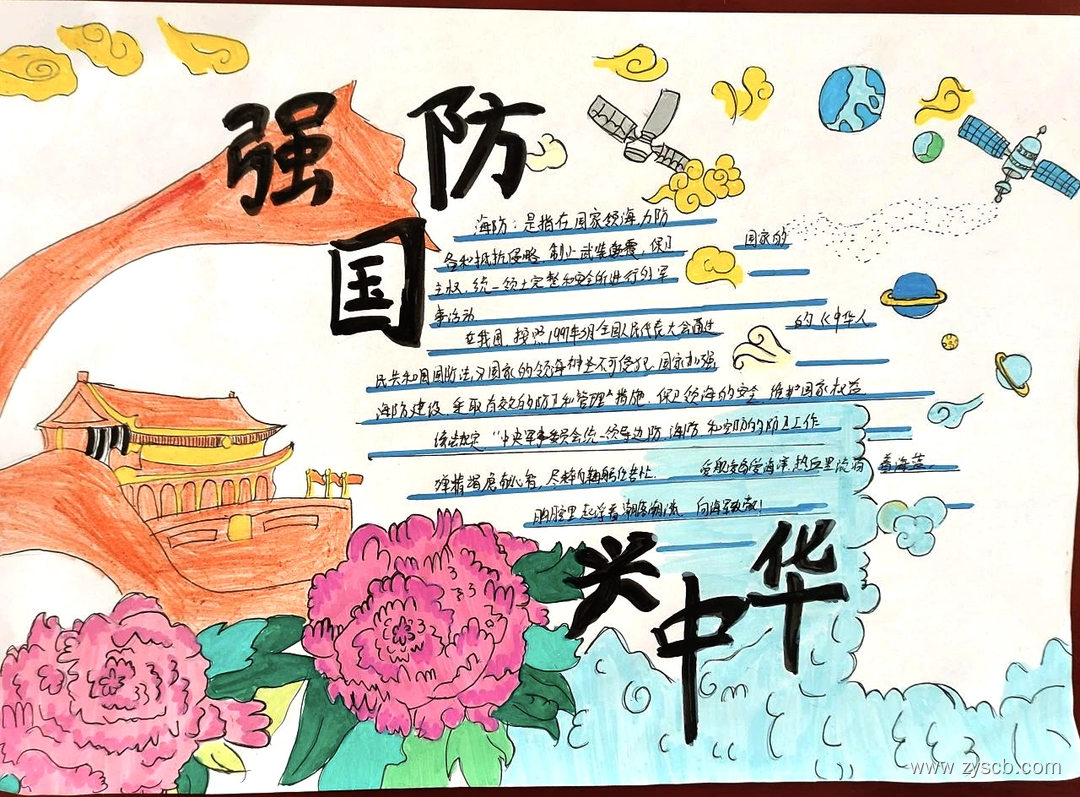 强
国
防
海防：是指在国家领海为防
国家的
备和抵抗侵略，制止武装，保卫
主权，统一领土完整和安全所进行的军
事活动
在我国，按照1997年3月全国人民代表大会通过
的《中华人
民共和国国防法》国家的领海神圣不可侵犯，国家加强
海防建设，采取有效的防卫和管理措施，保卫领海的安全，维护国家权益
该法规定"中央军事委员会统一领导边防，海防和空防的防卫工作
殚精竭虑，尽职
热血里流淌着海蓝，
胸腔里起浮着潮 向海军致敬！
兴
中
华
www.zyscb.com